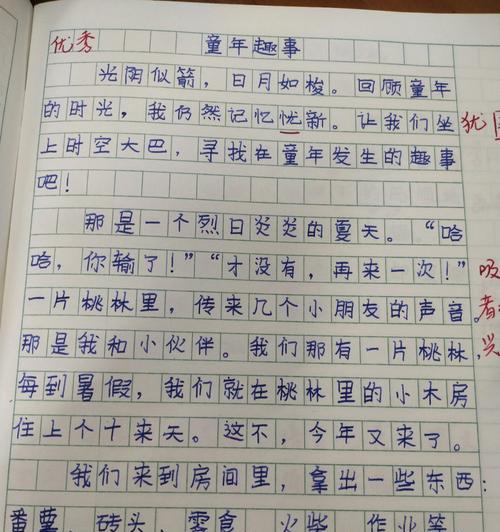 优秀 童年趣事
光阴似箭，日月如梭。回顾童年
的时光，我仍然记忆忧新。让我们坐 犹
上时空大巴，寻找在童年发生的趣事
吧！
那是一个烈日炎炎的夏天。“哈
哈，你输了！”“才没有，再来一次！” 吸
一片桃林里，传来几个小朋友的声音。 者
那是我和小伙伴。我们那有一片桃林， 兴
每到暑假，我们就在桃林里的小木房
住上个十来天。这不，今年又来了。
我们来到房间里，拿出一些东西：
番薯、砖头、零食、火柴、作业等